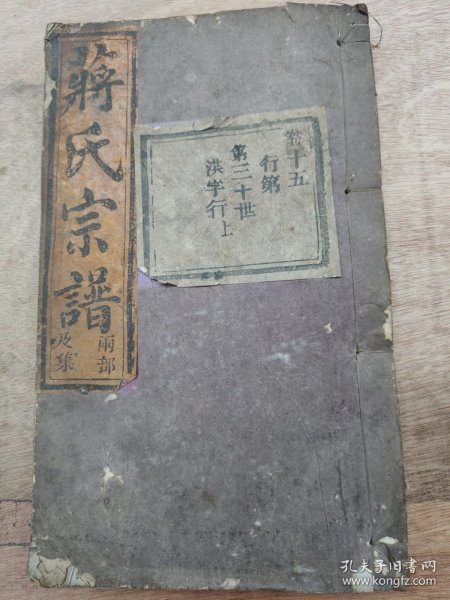 蔣氏宗譜
兩部
及集
卷十五
行第
第三十世
洪字行上
孔夫子旧书网
www.kongfz.com